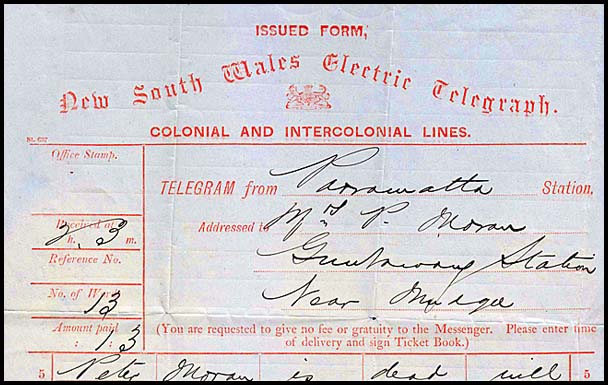 ISSUED FORM,
New South Wales Electric Telegraph.
COLONIAL AND INTERCOLONIAL LINES.
Office Stamp.
TELEGRAM from Parramatta Station,
Received at
3 h. 3 m.
Addressed to Mrs P. Moran
Reference No.
Guntawang Station
No. of Words
13
Near Mudgee
Amount paid
: 1 : 3
(You are requested to give no fee or gratuity to the Messenger. Please enter time
of delivery and sign Ticket Book.)
5 Peter Moran is dead will 5